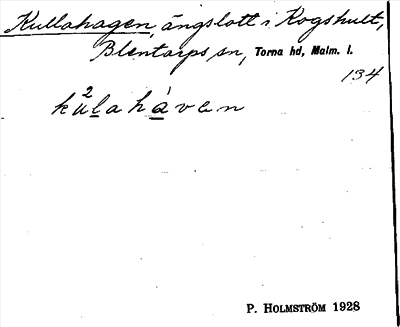 Kullahagen, ängslott i Kogshult,
Blentarps sn, Torna hd, Malm. l.
134
ku²lahàven
P. HOLMSTRÖM 1928